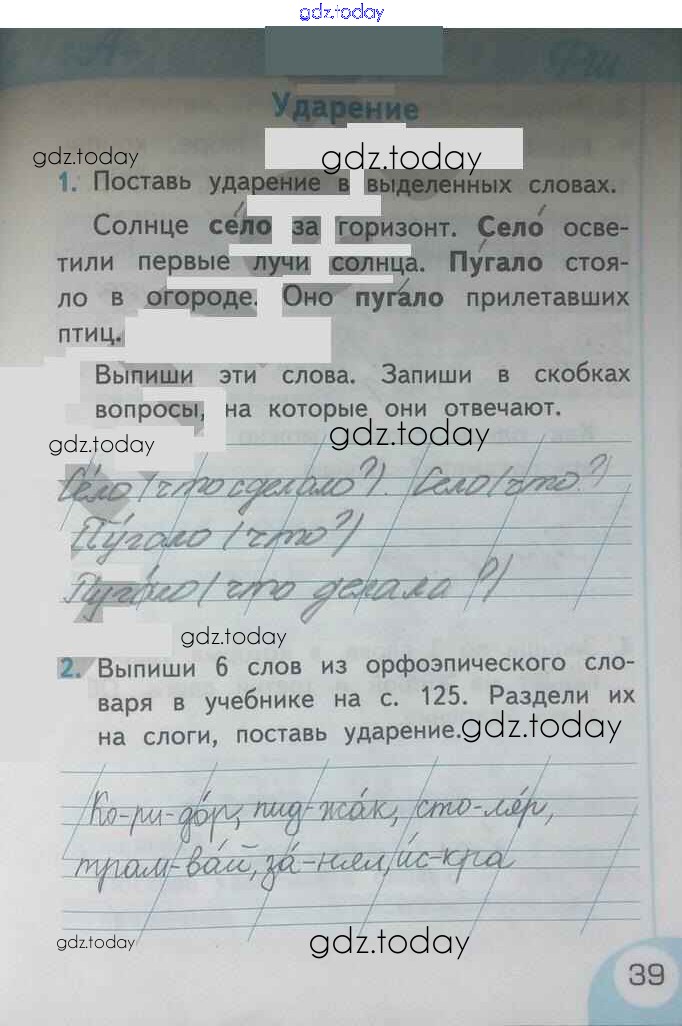 gdz.today
Ударение
gdz.today
gdz.today
1. Поставь ударение в выделенных словах.
Солнце се́ло за горизонт. Село́ осве-
тили первые лучи солнца. Пу́гало стоя-
ло в огороде. Оно пуга́ло прилетавших
птиц.
Выпиши эти слова. Запиши в скобках
вопросы, на которые они отвечают.
gdz.today
gdz.today
Се́ло (что сделало?). Село (что?)
Пу́гало (что?)
Пуга́ло (что делала?)
gdz.today
2. Выпиши 6 слов из орфоэпического сло-
варя в учебнике на с. 125. Раздели их
на слоги, поставь ударение.
gdz.today
Ко-ри-до́р, пид-жа́к, сто-ля́р,
трам-ва́й, за́-нял, и́с-кра
gdz.today
gdz.today
39